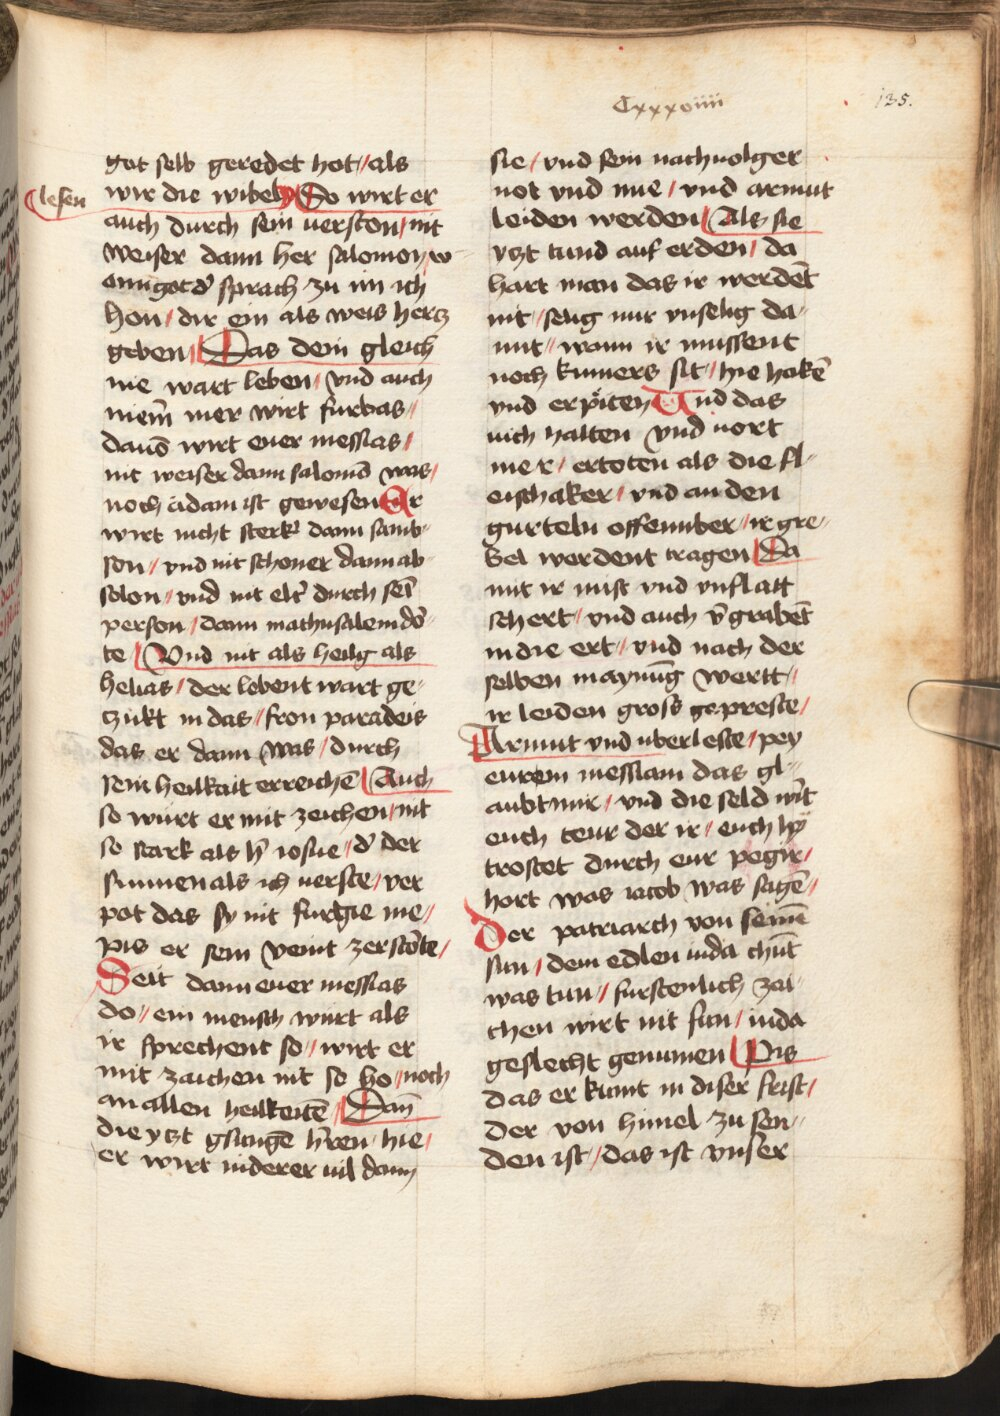 Cxxxviiii
135.
got selb geredet hot // als
lesen
wir die wibel So wirt er
auch durch sein verston / nit
weiser dann her salomon / w
ann got d͛ sprach zu im ich
hon / dir ein als weis hertz
geben / Das dem gleich
nie wart leben / vnd auch
niem̄ mer wirt furbas /
dauō wirt euer messias /
nit weiser dann salomō was /
noch adam ist gewesen Er
wirt nicht sterk͛ dann samb-
son / vnd nit schoner dann ab-
solon / vnd nit elt͛ durch sei̅
person / dann mathusalem do͛-
te / Vnd nit als heilg als
helias / der lobent wart ge-
tzukt in das / fron paradeis
das er dann was / durch
sein heilkait erreichē / Auch
so wurt er mit zeichen / nit
so stark als h͛ iosue / d͛ der
sunnen als ich verste / ver
pot das sy nit furgie me /
pis er sein veint zerstorte /
Seit dann euer messias
do / ein mensch wurt als
ir sprechent so / wirt er
mit zaichen nit so ho / noch
an allen heilkeitē / Dan̄
die ytzt gsungē h͛ren / hie /
er wirt niderer vil dann
sie / vnd sein nachuolger
not vnd mue / vnd armut
leiden werden / Als sie
ytzt tund auf erden / da
hart man das ir werdēt
nit / selig nur vnselig da-
mit / wann ir mussent
noch kumers sit / hie hakē
vnd erpiten Und das
vich halten vnd uort
mer / ertoten als die fl-
eischaker / vnd an den
gurteln offennber / ir gre-
bel werdent tragen / Da
mit ir mist vnd vnflatt
schert / vnd auch v͛grabēt
in die ert / vnd nach der
selben maynūg wertt /
ir leiden gross gepreste /
Armut vnd uberleste / pey
eurem messiam das gl-
aubt mir / vnd die seld w͛t
euch teur der ir / euch hy
trostet durch eur pegir /
hort was iacob was sagē /
Der patriarch von seinē
sun / dem edlen iuda chūt
was tun / furstenlich zai-
chen wirt nit fun / iuda
geslecht genumen / Pis
das er kumt in diser frist /
der von himel zu sen-
den ist / das ist vnser